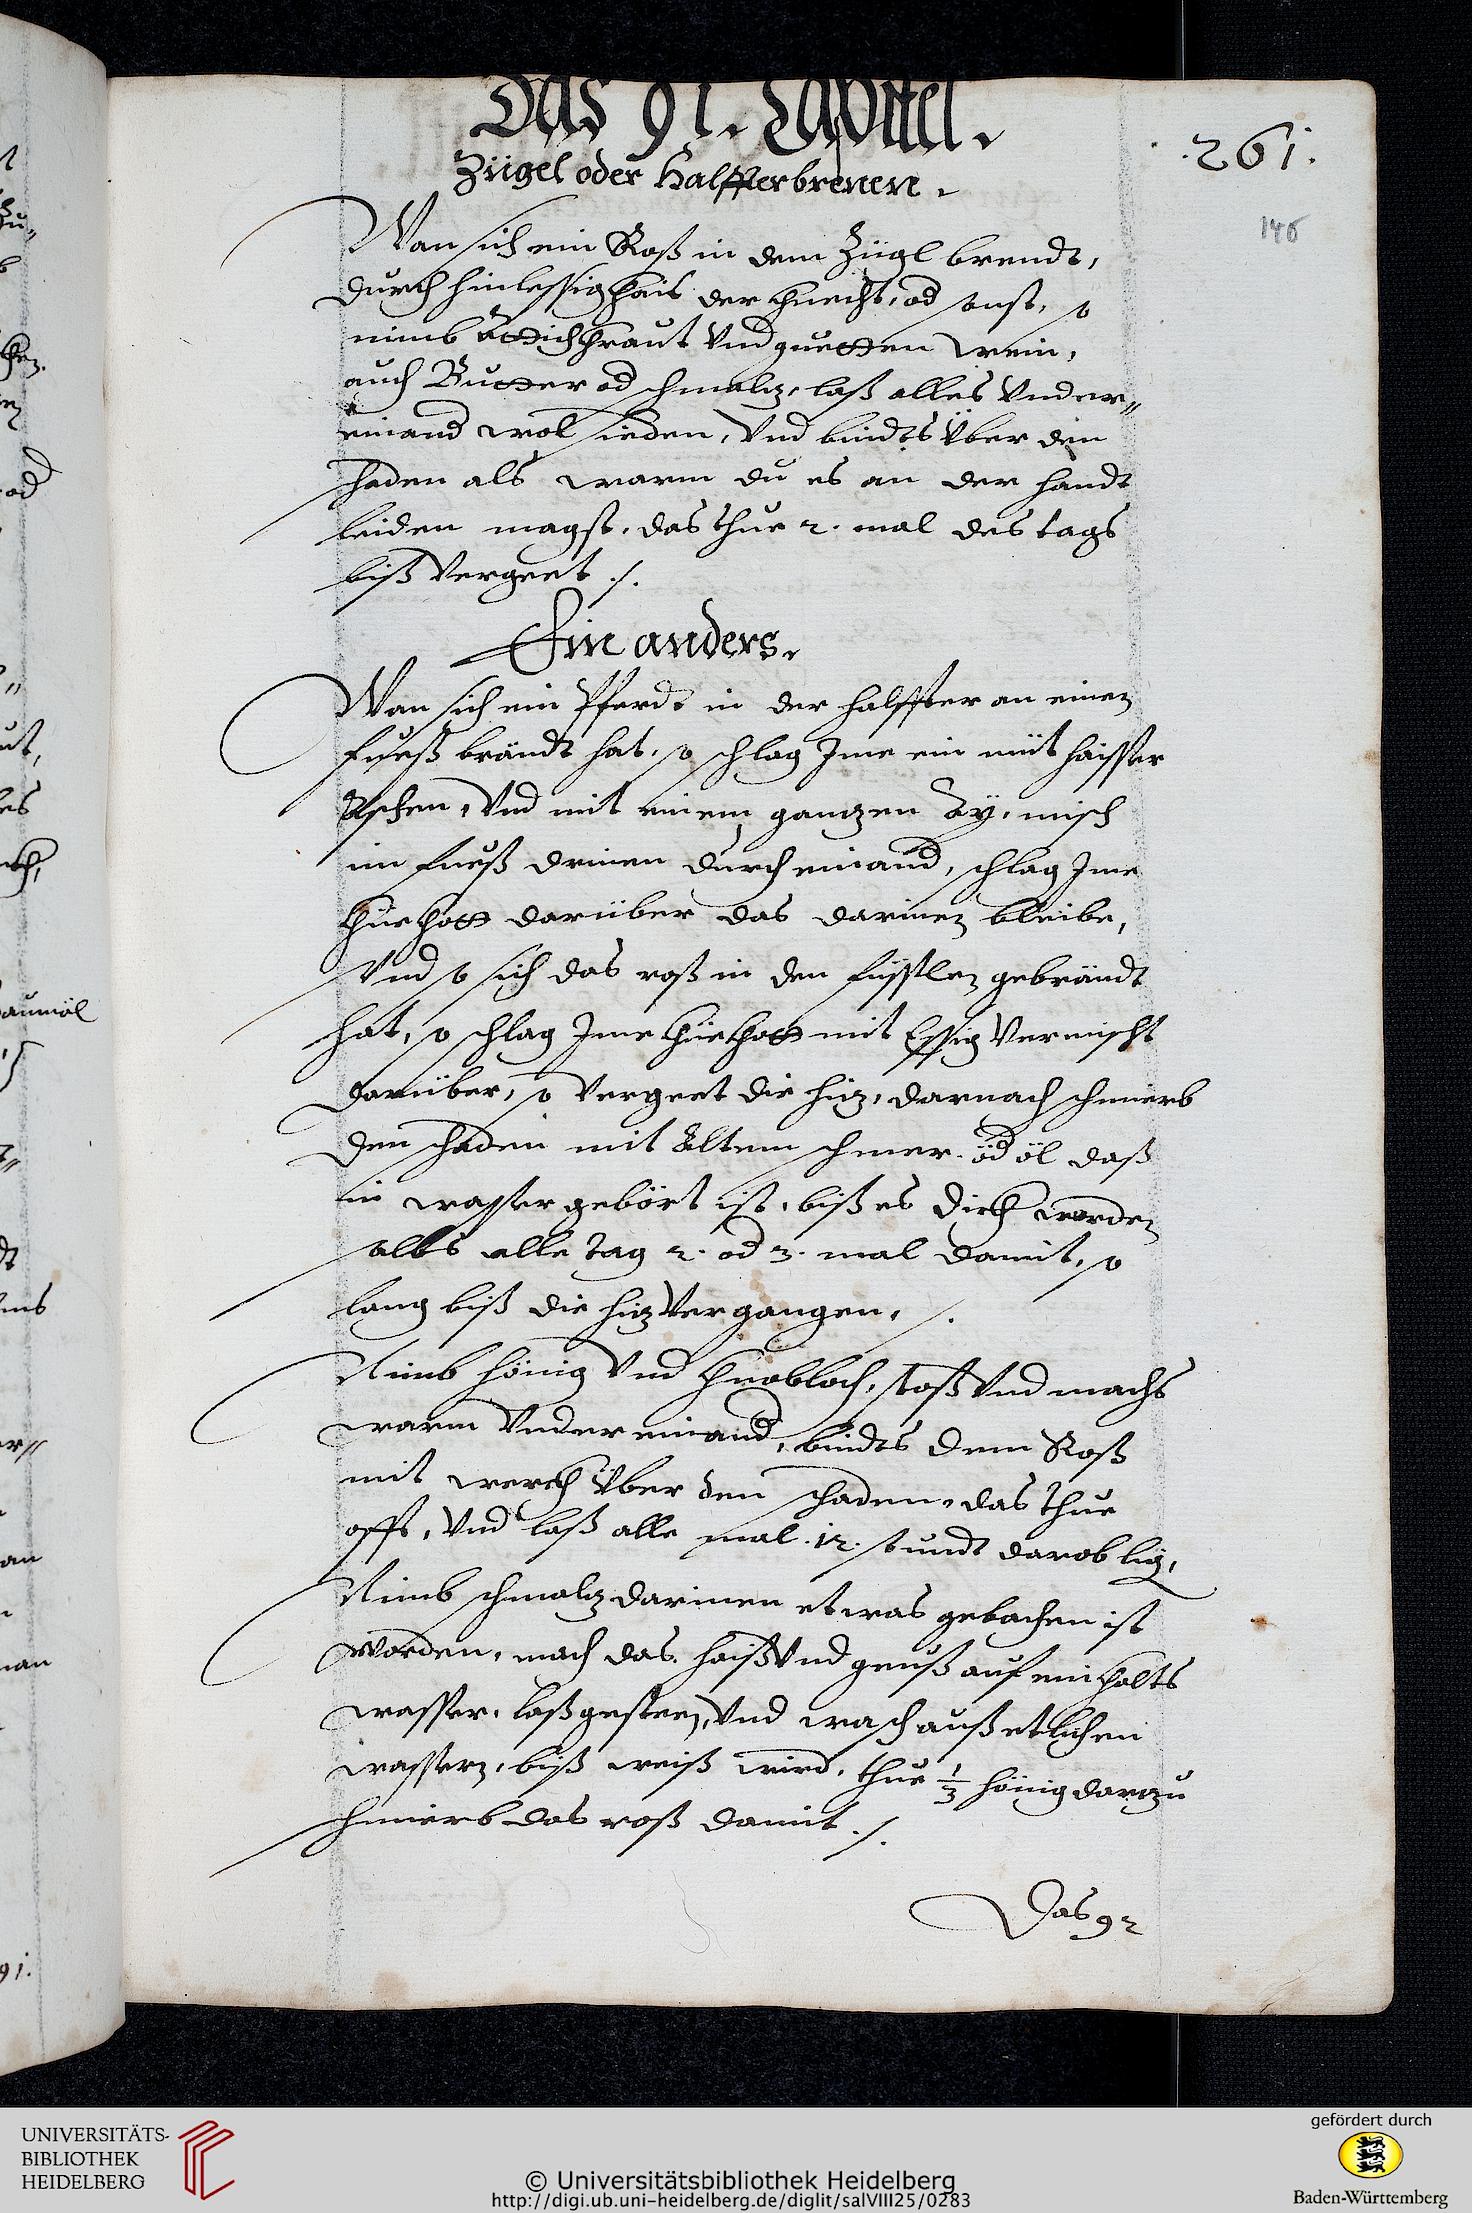 Das 91. Capitel.
Zügel oder Halffterbrenen.
.261.
146
Wan sich ein Roß in dem Zügl brendt,
durch hinlessigkhait der khnecht, od sonst, so
nimb Ättichkhraut Vnd guetten wein,
auch Butter od schmalz, laß alles Vnder=
einand wol sieden, Vnd bindts Über den
schaden als warm du es an der handt
leiden magst, das thue 2. mal des tags
biß Vergeet ./.
Ein anders.
Wan sich ein Pferdt in der halffter an einem
fueß brändt hat, so schlag Ime ein mit haisser
Aschen, Vnd mit einem ganzen Ay, misch
im fueß drinen durch einand, schlag Ime
khüe khott darüber das darinen bleibe,
Vnd so sich das roß in den füsslen gebrändt
hat, so schlag Ime khüe khott mit Essig Vermischt
darüber, so Vergeet die hiz, darnach schmierb
den schaden mit Altem schmer. od öl daß
in wasser gebört ist, biß es dickh worden
salbs alle Tag 2. od 3. mal damit, so
lang biß die hiz Vergangen. ./.
Nimb hönig Vnd khnobloch, stoß Vnd machs
warm Vnder einand, bindts dem Roß
mit werckh Über den schaden, das thue
offt, Vnd laß alle mal .12. stundt darob lig,
Nimb schmalz darinen etwas gebachen ist
worden, mach das haiß Vnd geuß auf ein kholts
wasser, laß gesteen, Vnd wasch auß etlichen
wassern, biß weiß wird, thue 1/3 hönig darzu
schmierb das roß damit ./.
Das 92
od
aumöl
91.
UNIVERSITÄTS-
BIBLIOTHEK
HEIDELBERG
© Universitätsbibliothek Heidelberg
http://digi.ub.uni-heidelberg.de/diglit/salVIII25/0283
gefördert durch
Baden-Württemberg